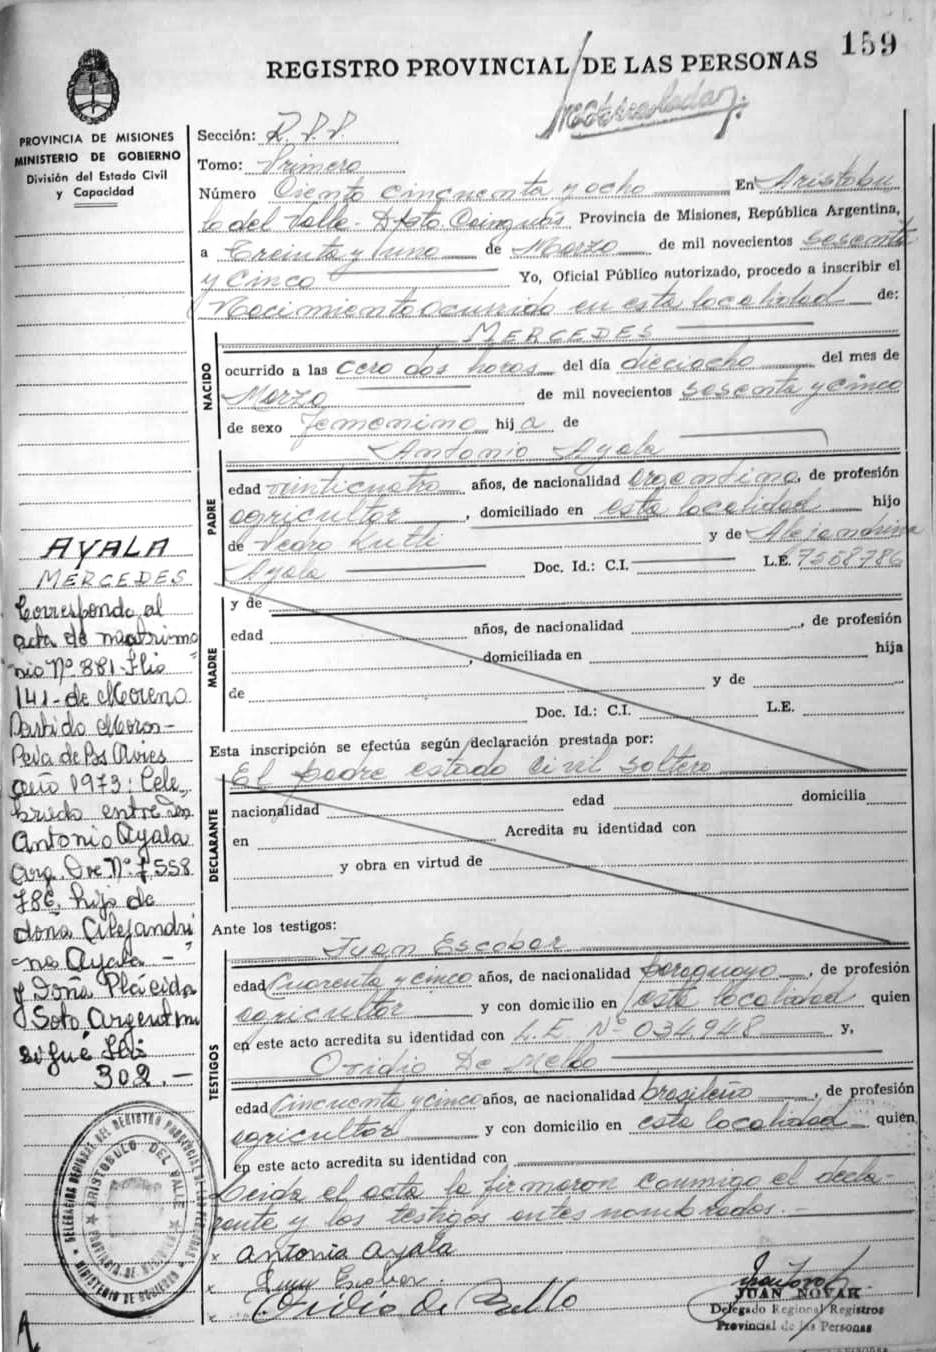 159
REGISTRO PROVINCIAL DE LAS PERSONAS
PROVINCIA DE MISIONES
MINISTERIO DE GOBIERNO
División del Estado Civil
y Capacidad
Sección: R.P.P.
Tomo: Primero
Número Ciento cincuenta y ocho En Aristobu
lo del Valle - Dpto. Cainguás Provincia de Misiones, República Argentina,
a Treinta y uno de Marzo de mil novecientos sesenta
y cinco Yo, Oficial Público autorizado, procedo a inscribir el
Nacimiento ocurrido en esta localidad de:
MERCEDES
NACIDO
ocurrido a las cero dos horas del día dieciocho del mes de
Marzo de mil novecientos sesenta y cinco
de sexo femenino hija de
Antonio Ayala
PADRE
edad veinticuatro años, de nacionalidad argentino, de profesión
agricultor, domiciliado en esta localidad hijo
de Pedro y de Alejandrina
Ayala Doc. Id.: C.I. L.E. 7558786
MADRE
y de
edad años, de nacionalidad , de profesión
, domiciliada en hija
de y de
Doc. Id.: C.I. L.E.
Esta inscripción se efectúa según declaración prestada por:
El padre estado civil soltero
DECLARANTE
nacionalidad edad domicilia
en Acredita su identidad con
y obra en virtud de
Ante los testigos:
Juan Escobar
TESTIGOS
edad Cuarenta y cinco años, de nacionalidad paraguayo, de profesión
agricultor y con domicilio en esta localidad quien
en este acto acredita su identidad con L.E. Nº 034.948 y,
Ovidio De Mello
edad Cincuenta y cinco años, de nacionalidad brasileño, de profesión
agricultor y con domicilio en esta localidad quien
en este acto acredita su identidad con
Leida el acta la firmaron conmigo el decla-
rante y los testigos antes nombrados.-
x Antonio Ayala
x Juan Escobar.
x Ovidio de Mello
JUAN NOVAK
Delegado Regional Registros
Provincial de las Personas
AYALA
MERCEDES
Corresponde al
acta de matrimo
nio Nº 881. Flio
141 - de Moreno
Partido Moron -
Pcia de Bs Aires
año 1973: Cele
brado entre don
Antonio Ayala
arg. Dre Nº 7.558
786, hijo de
doña Alejandri
na Ayala -
y Doña Plácida
Soto Argentina
302.-
DELEGACION REGIONAL DEL REGISTRO PROVINCIAL DE LAS PERSONAS
MINISTERIO DE GOBIERNO
ARISTOBULO DEL VALLE
PROVINCIA DE MISIONES